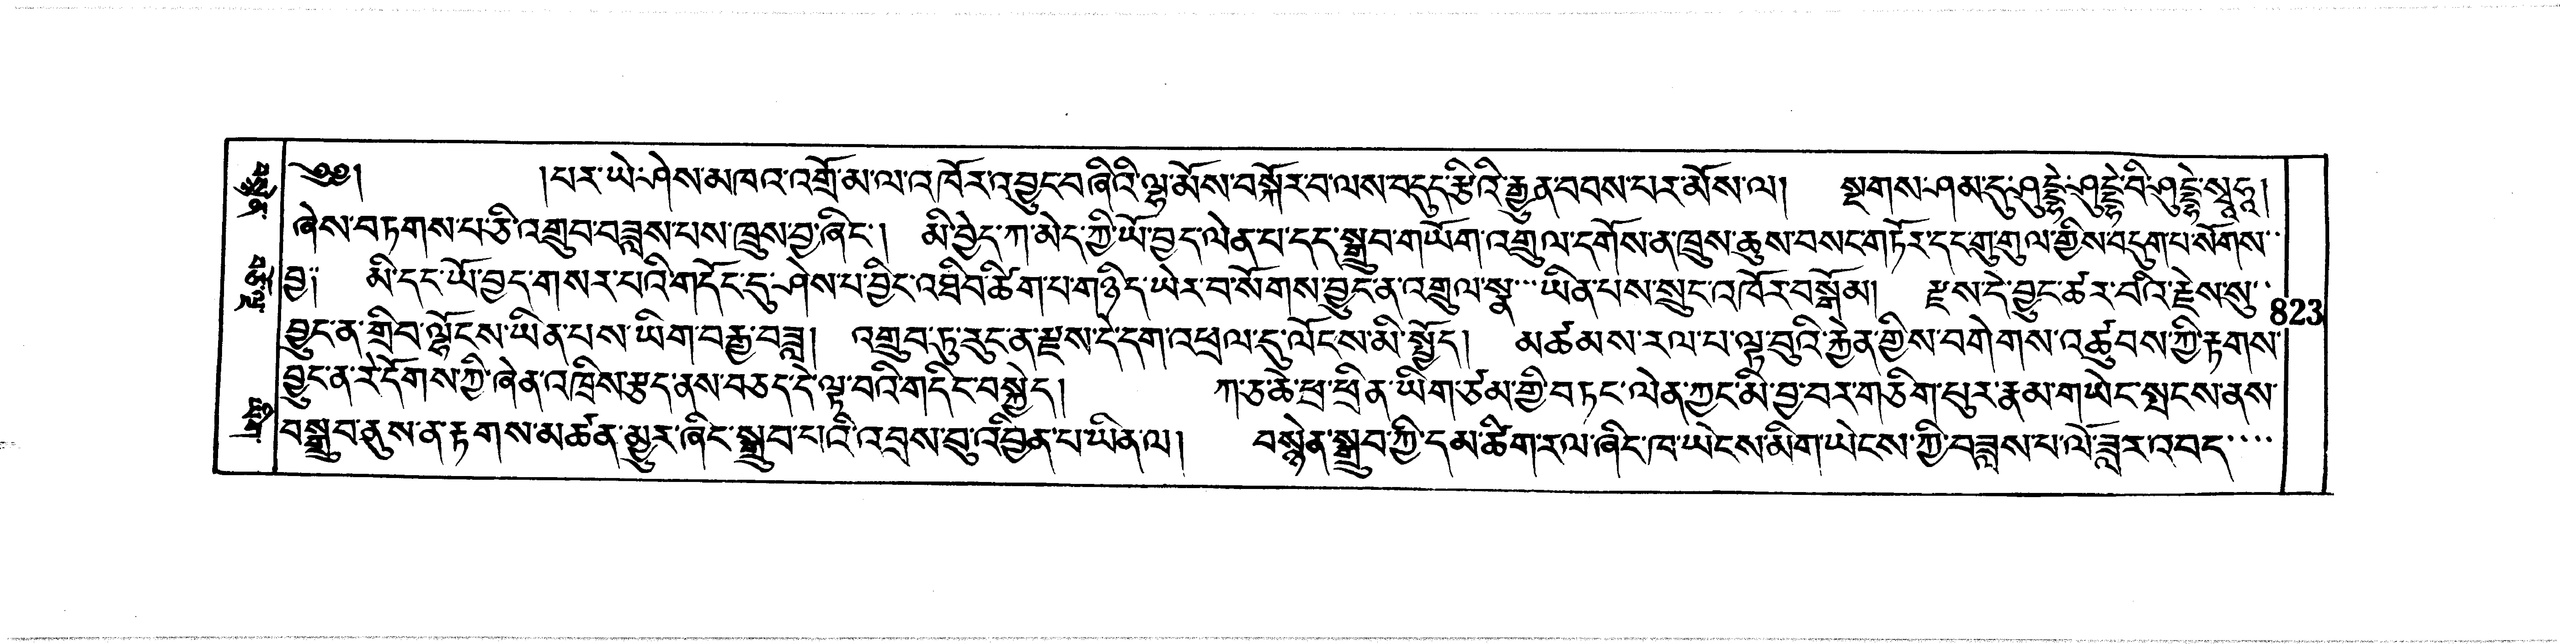 ༄༅། །པར་ཡེ་ཤེས་མཁའ་འགྲོ་མ་ལ་འཁོར་འབྱུང་བཞིའི་ལྷ་མོས་བསྐོར་བ་ལས་བདུད་རྩིའི་རྒྱུན་བབས་པར་མོས་ལ། སྔགས་ཤམ་དུ་ཤུདྡྷེ་ཤུདྡྷེ་བི་ཤུདྡྷེ་སྭཱཧཱ།
ཞེས་བཏགས་པ་ཅི་འགྲུབ་བཟླས་པས་ཁྲུས་བྱ་ཞིང་། མི་བྱེད་ཀ་མེད་ཀྱི་ཡོ་བྱད་ལེན་པ་དང་སྒྲུབ་གཡོག་འགྲུལ་དགོས་ན་ཁྲུས་ཆུས་བསང་གཏོར་དང་གུ་གུལ་གྱིས་བདུག་པ་སོགས་
བྱ༔ མི་དང་ཡོ་བྱད་གསར་པའི་གདོང་དུ་ཤེས་པ་བྱིང་འཐིབ་ཚིག་པ་གཉིད་ཡེར་བ་སོགས་བྱུང་ན་འགྲུལ་སྣ་ཡིན་པས་སྲུང་འཁོར་བསྒོམ། རྫས་དེ་བྱུང་ཚར་བའི་རྗེས་སུ་
བྱུང་ན་གྲིབ་ལྷོངས་ཡིན་པས་ཡིག་བརྒྱ་བཟླ། འགྲུབ་ཏུ་རུང་ན་རྫས་དེ་དག་འཕྲལ་དུ་ལོངས་མི་སྤྱོད། མཚམས་རལ་པ་ལྟ་བུའི་རྐྱེན་གྱིས་བགེགས་འཚུབས་ཀྱི་རྟགས་
བྱུང་ན་རེ་དོགས་ཀྱི་ཞེན་འཁྲིས་རྩད་ནས་བཅད་དེ་ལྟ་བའི་གདིང་བསྐྱེད། ཀ་ཅ་ཆེ་ཕྲ་ཕྲིན་ཡིག་ཙམ་གྱི་བཏང་ལེན་ཀྱང་མི་བྱ་བར་གཅིག་པུར་རྣམ་གཡེང་སྤངས་ནས་
བསྒྲུབ་ནུས་ན་རྟགས་མཚན་མྱུར་ཞིང་སྒྲུབ་པའི་འབྲས་བུ་འབྱིན་པ་ཡིན་ལ། བསྙེན་སྒྲུབ་ཀྱི་དམ་ཚིག་རལ་ཞིང་ཁ་ཡེངས་མིག་ཡེངས་ཀྱི་བཟླས་པ་ལོ་ཟླར་འབད་
823